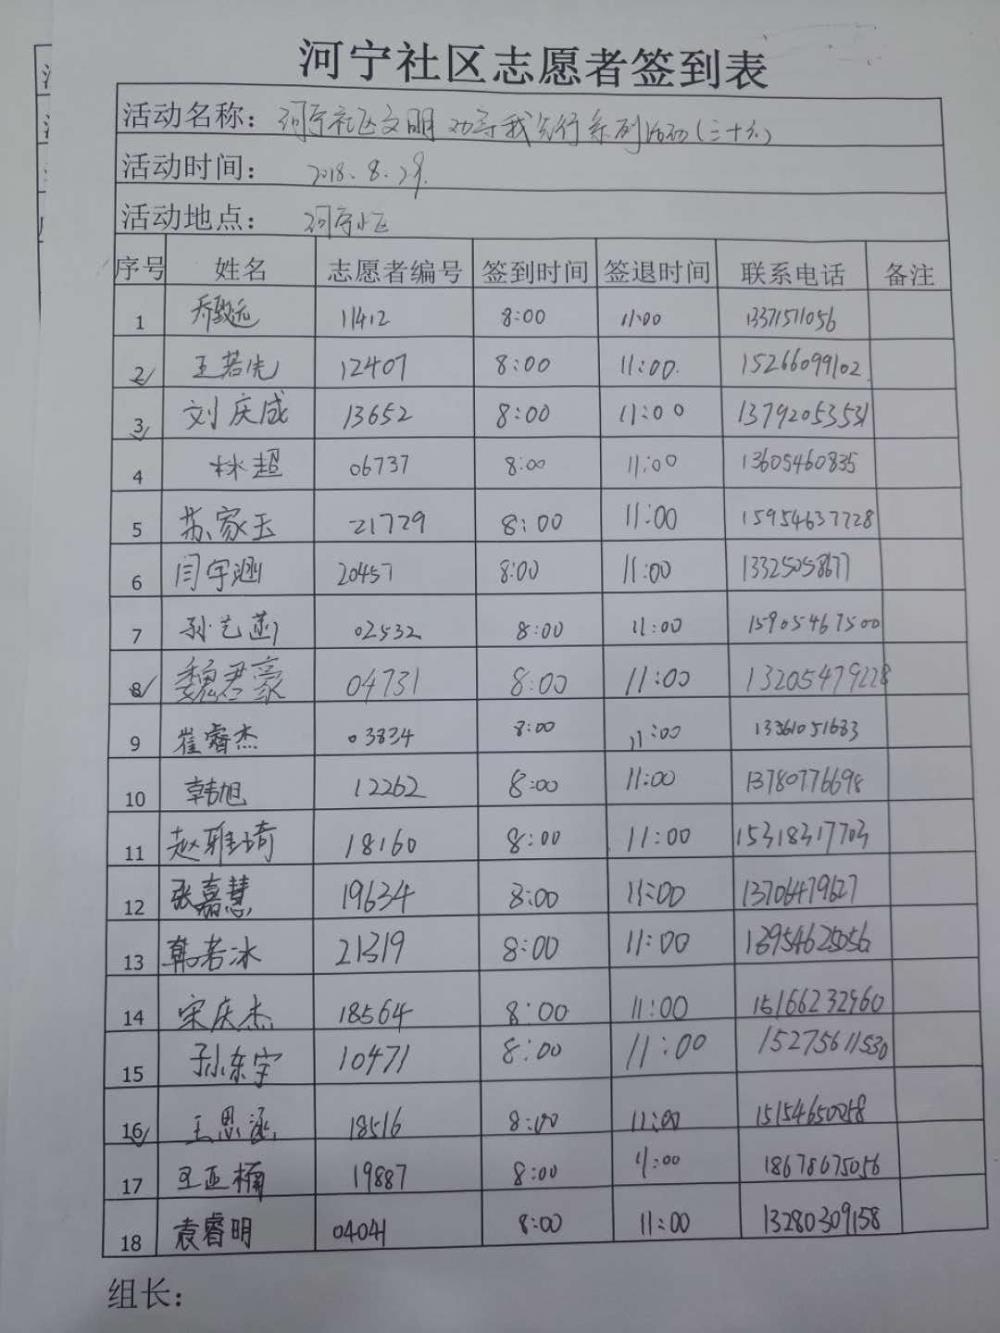 河宁社区志愿者签到表
活动名称：河宁社区文明 劝导我先行系列活动(三十六)
活动时间：2018.8.29.
活动地点：河宁小区
序号 姓名 志愿者编号 签到时间 签退时间 联系电话 备注
1 乔毅远 11412 8:00 11:00 13371511056
2 王若先 12407 8:00 11:00. 15266099102
3 刘庆成 13652 8:00 11:00 13792053531
4 林超 06737 8:00 11:00 13605460835
5 苏家玉 21729 8:00 11:00 15954637728
6 闫宇涵 20457 8:00 11:00 13325058677
7 孙艺菡 02532 8:00 11:00 15905467500
8 魏君豪 04731 8:00 11:00 13205479228
9 崔睿杰 03834 8:00 11:00 13361051683
10 韩旭 12262 8:00 11:00 13780776698
11 赵雅琦 18160 8:00 11:00 15318317703
12 张嘉慧 19634 8:00 11:00 13706479627
13 韩若冰 21319 8:00 11:00 13954625056
14 宋庆杰 18564 8:00 11:00 15166232960
15 孙东宇 10471 8:00 11:00 15275611530
16 王思涵 18516 8:00 11:00 15154650258
17 王亚楠 19887 8:00 11:00 18678675056
18 袁睿明 04041 8:00 11:00 13280309158
组长：